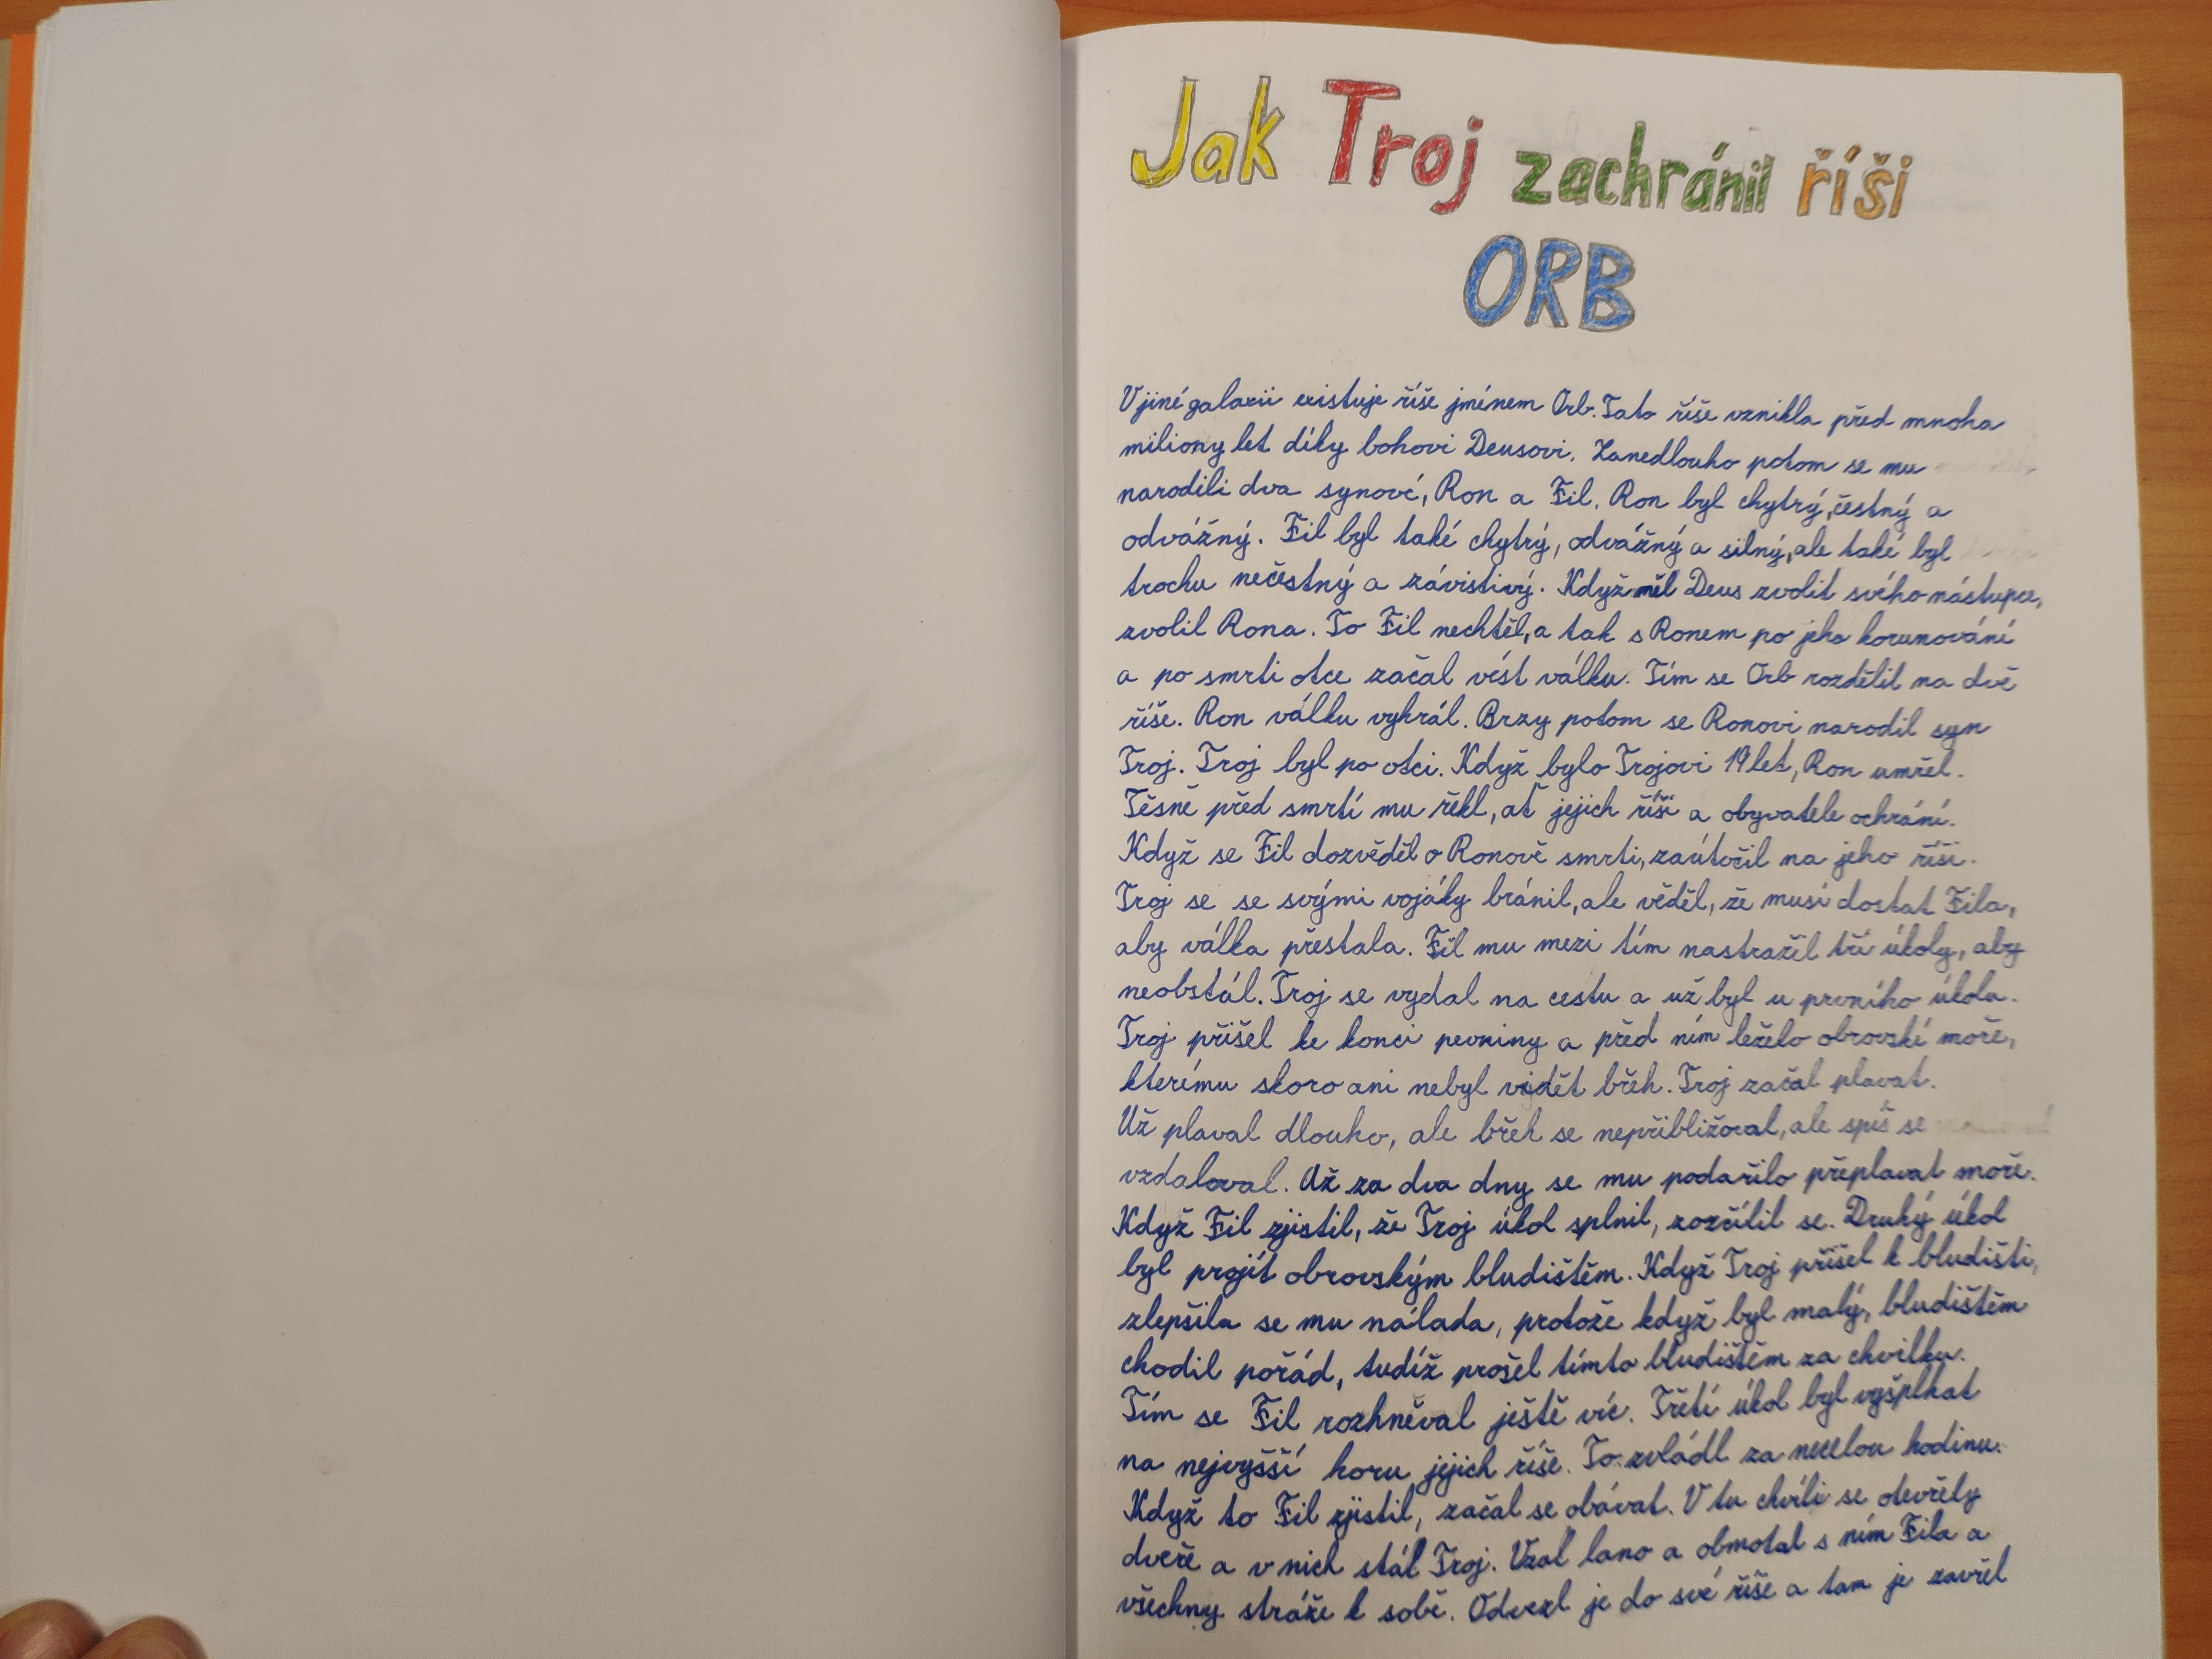 Jak Troj zachránil říši
ORB
V jiné galaxii existuje říše jménem Orb. Tato říše vznikla před mnoha
miliony let díky bohovi Deusovi. Zanedlouho potom se mu
narodili dva synové, Ron a Fil. Ron byl chytrý, čestný a
odvážný. Fil byl také chytrý, odvážný a silný, ale také byl
trochu nečestný a závistivý. Když měl Deus zvolit svého nástupce,
zvolil Rona. To Fil nechtěl, a tak s Ronem po jeho korunování
a po smrti otce začal vést válku. Tím se Orb rozdělil na dvě
říše. Ron válku vyhrál. Brzy potom se Ronovi narodil syn
Troj. Troj byl po otci. Když bylo Trojovi 19 let, Ron umřel.
Těsně před smrtí mu řekl, ať jejich říši a obyvatele ochrání.
Když se Fil dozvěděl o Ronově smrti, zaútočil na jeho říši.
Troj se se svými vojáky bránil, ale věděl, že musí dostat Fila,
aby válka přestala. Fil mu mezi tím nastražil tři úkoly, aby
neobstál. Troj se vydal na cestu a už byl u prvního úkolu.
Troj přišel ke konci pevniny a před ním leželo obrovské moře,
kterému skoro ani nebyl vidět břeh. Troj začal plavat.
Už plaval dlouho, ale břeh se nepřibližoval, ale spíš se
vzdaloval. Až za dva dny se mu podařilo přeplavat moře.
Když Fil zjistil, že Troj úkol splnil, rozčílil se. Druhý úkol
byl projít obrovským bludištěm. Když Troj přišel k bludišti,
zlepšila se mu nálada, protože když byl malý, bludištěm
chodil pořád, tudíž prošel tímto bludištěm za chvilku.
Tím se Fil rozhněval ještě víc. Třetí úkol byl vyšplhat
na nejvyšší horu jejich říše. To zvládl za necelou hodinu.
Když to Fil zjistil, začal se obávat. V tu chvíli se otevřely
dveře a v nich stál Troj. Vzal lano a obmotal s ním Fila a
všechny stráže k sobě. Odvezl je do své říše a tam je zavřel